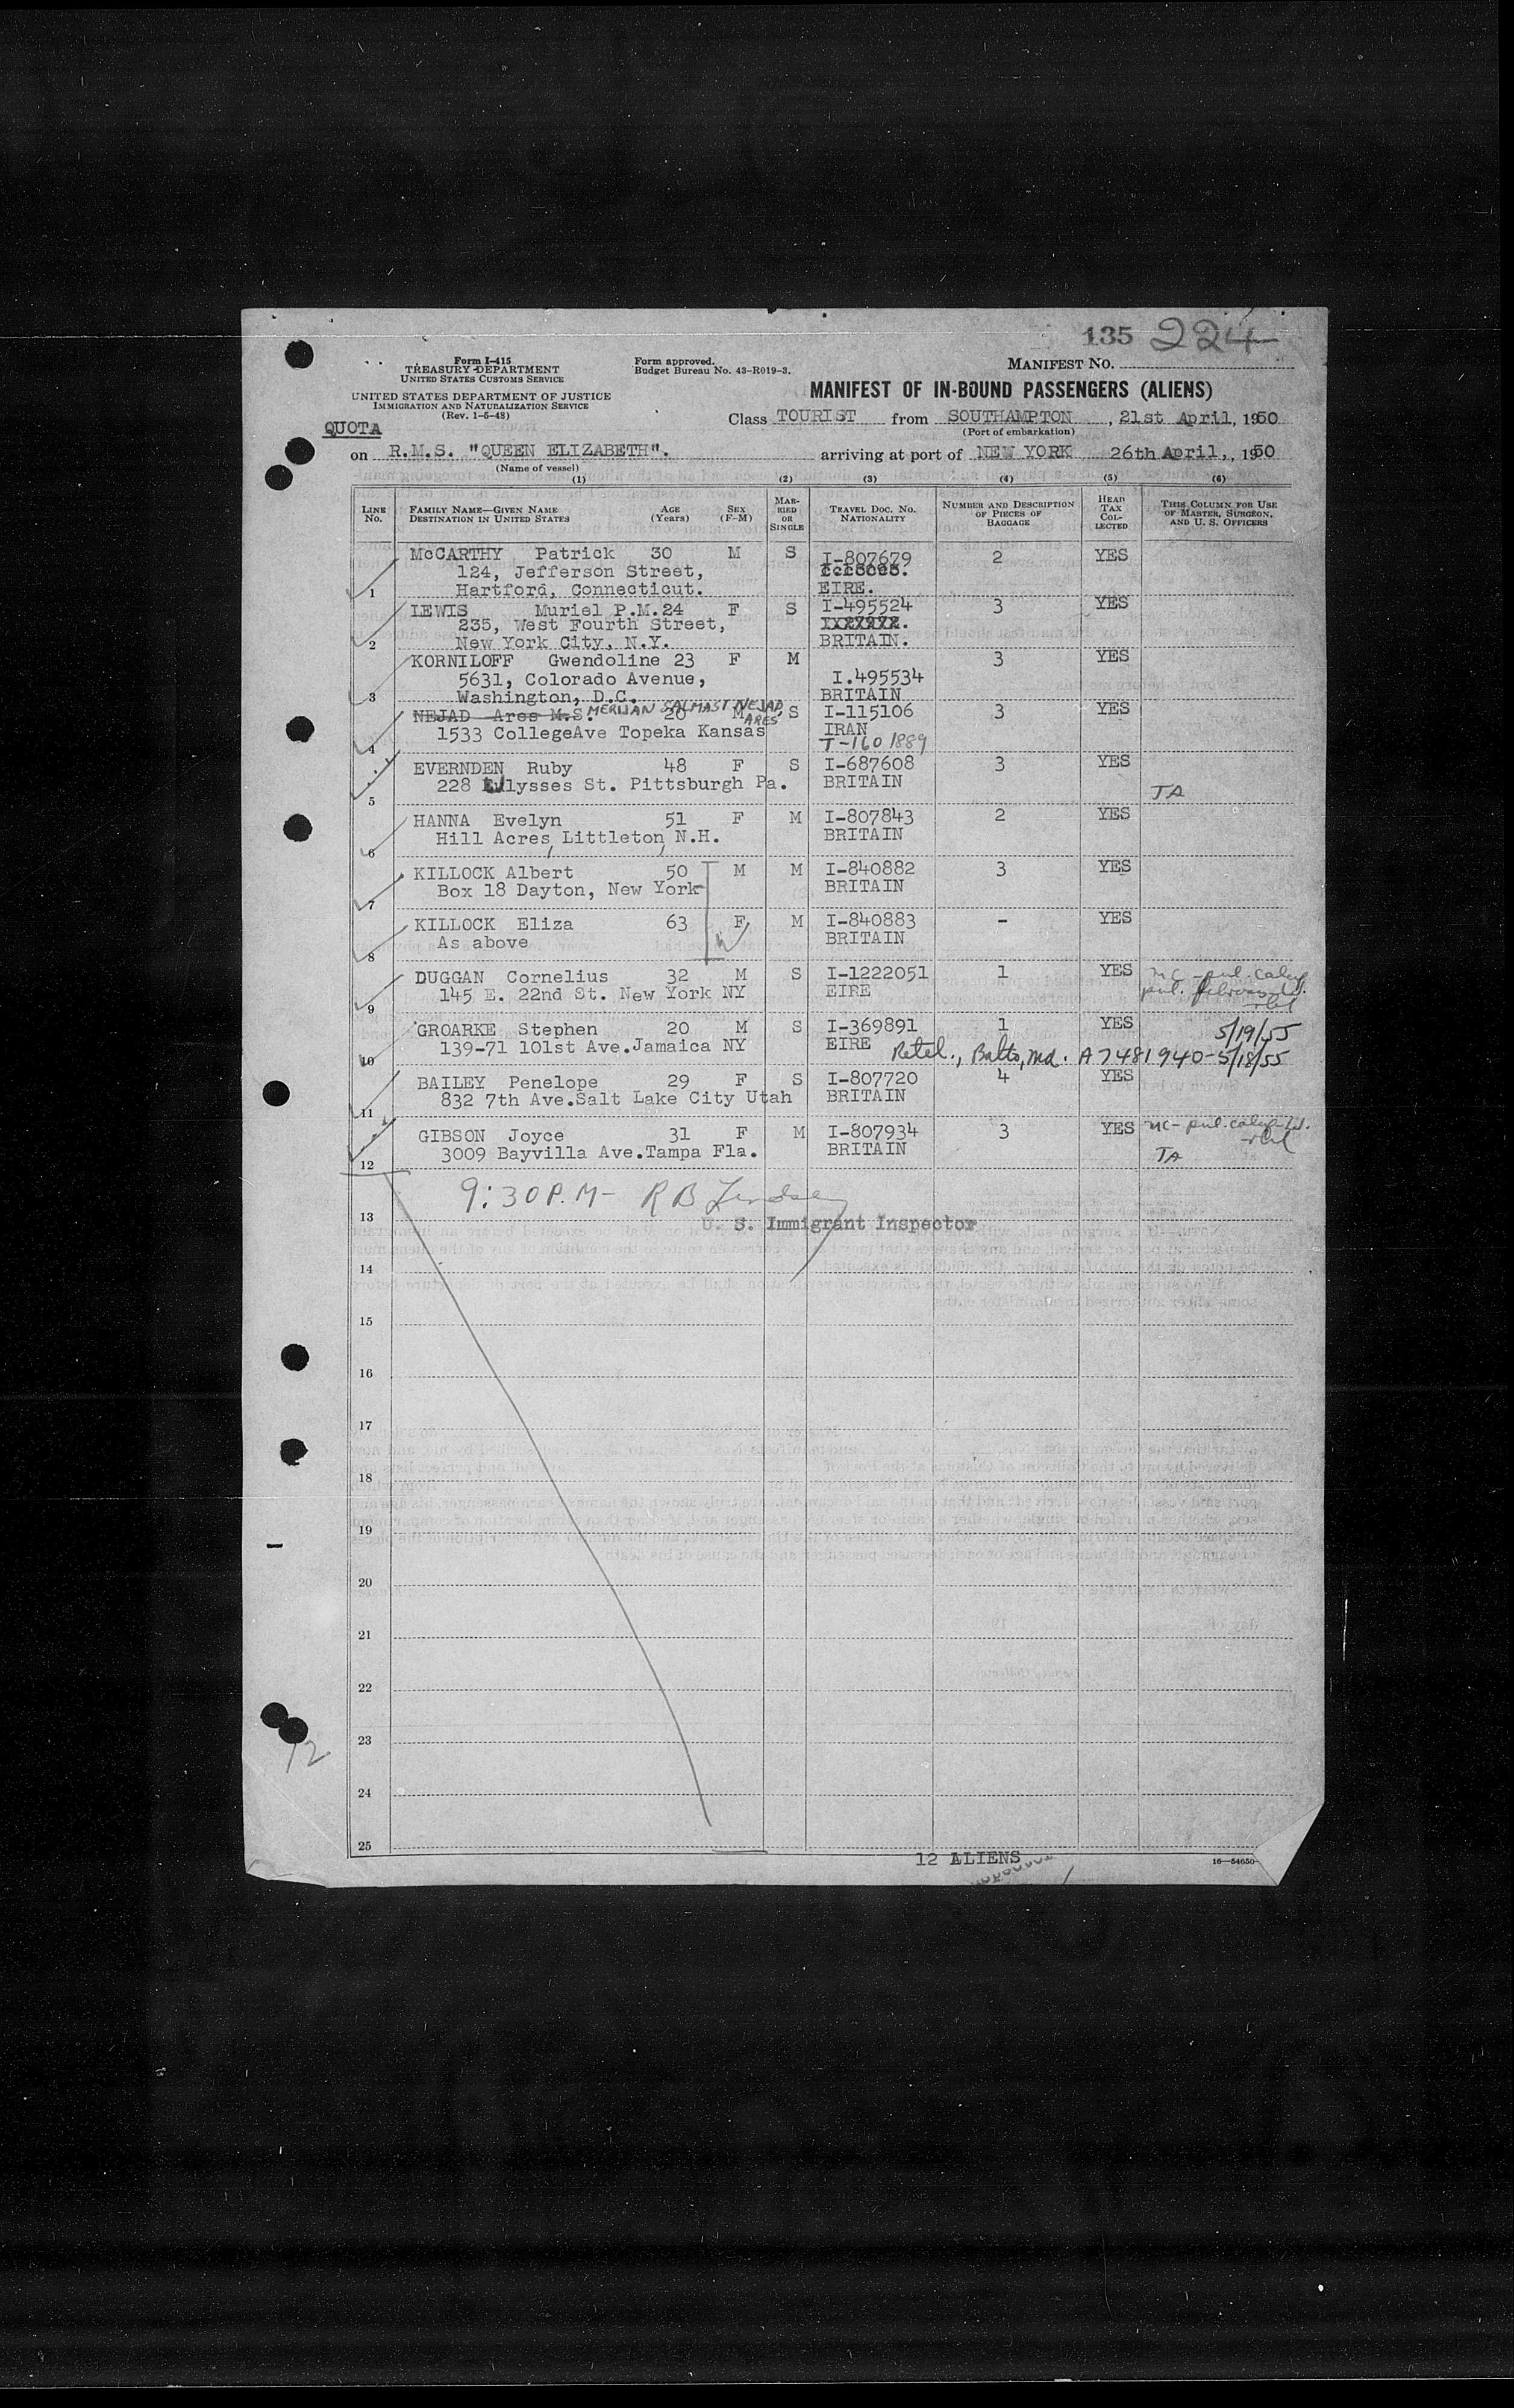 135 224
Form I-415
TREASURY DEPARTMENT
UNITED STATES CUSTOMS SERVICE
Form approved.
Budget Bureau No. 43-R019-3.
MANIFEST NO.
UNITED STATES DEPARTMENT OF JUSTICE
IMMIGRATION AND NATURALIZATION SERVICE
(Rev. 1-5-48)
MANIFEST OF IN-BOUND PASSENGERS (ALIENS)
QUOTA
Class TOURIST from SOUTHAMPTON, 21st April, 1950
(Port of embarkation)
on R.M.S. "QUEEN ELIZABETH". arriving at port of NEW YORK 26th April, 1950
(Name of vessel)
(1) (2) (3) (4) (5) (6)
LINE No. FAMILY NAME—GIVEN NAME DESTINATION IN UNITED STATES AGE (Years) SEX (F-M) MARRIED OR SINGLE TRAVEL DOC. NO. NATIONALITY NUMBER AND DESCRIPTION OF PIECES OF BAGGAGE HEAD TAX COLLECTED THIS COLUMN FOR USE OF MASTER, SURGEON, AND U. S. OFFICERS
McCARTHY Patrick 30 M S I-807679 2 YES
124, Jefferson Street,
1 Hartford, Connecticut. EIRE.
LEWIS Muriel P.M. 24 F S I-495524 3 YES
235, West Fourth Street,
2 New York City, N.Y. BRITAIN.
KORNILOFF Gwendoline 23 F M 3 YES
5631, Colorado Avenue, I.495534
3 Washington, D.C. BRITAIN
NEJAD Ares M.S. MERIJAN SALMAST NEJAD, ARES 20 M S I-115106 3 YES
1533 CollegeAve Topeka Kansas IRAN
4 T-1601889
EVERNDEN Ruby 48 F S I-687608 3 YES
228 Ulysses St. Pittsburgh Pa. BRITAIN
5 TA
HANNA Evelyn 51 F M I-807843 2 YES
Hill Acres, Littleton, N.H. BRITAIN
6
KILLOCK Albert 50 M M I-840882 3 YES
Box 18 Dayton, New York BRITAIN
7
KILLOCK Eliza 63 F M I-840883 - YES
As above BRITAIN
8
DUGGAN Cornelius 32 M S I-1222051 1 YES
145 E. 22nd St. New York NY EIRE
9
GROARKE Stephen 20 M S I-369891 1 YES 5/19/55
139-71 101st Ave.Jamaica NY EIRE
10 Balto, Md. A7481940-5/18/55
BAILEY Penelope 29 F S I-807720 4 YES
832 7th Ave.Salt Lake City Utah BRITAIN
11
GIBSON Joyce 31 F M I-807934 3 YES
3009 Bayvilla Ave.Tampa Fla. BRITAIN TA
12
9:30 P.M- R B Lindsey
13 U. S. Immigrant Inspector
14
15
16
17
18
19
20
21
22
12
23
24
25
12 ALIENS
16—54650